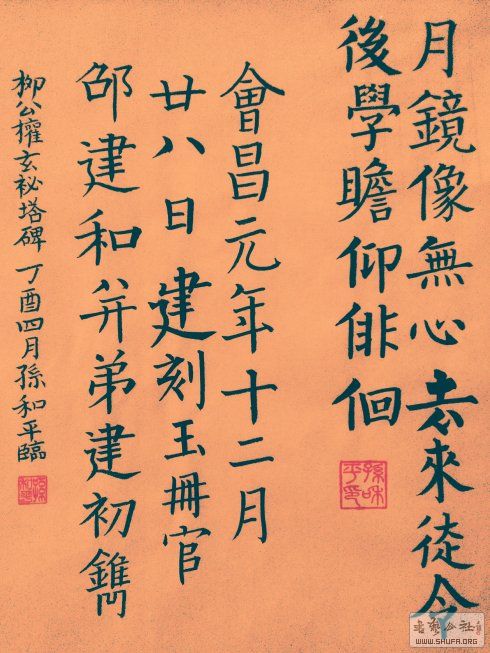 月鏡像無心去來徒令
後學瞻仰俳佪
會昌元年十二月
廿八日建刻玉冊官
邵建和并弟建初鐫
柳公權玄祕塔碑丁酉四月孫和平臨
孫和平印
WWW.SHUFA.ORG